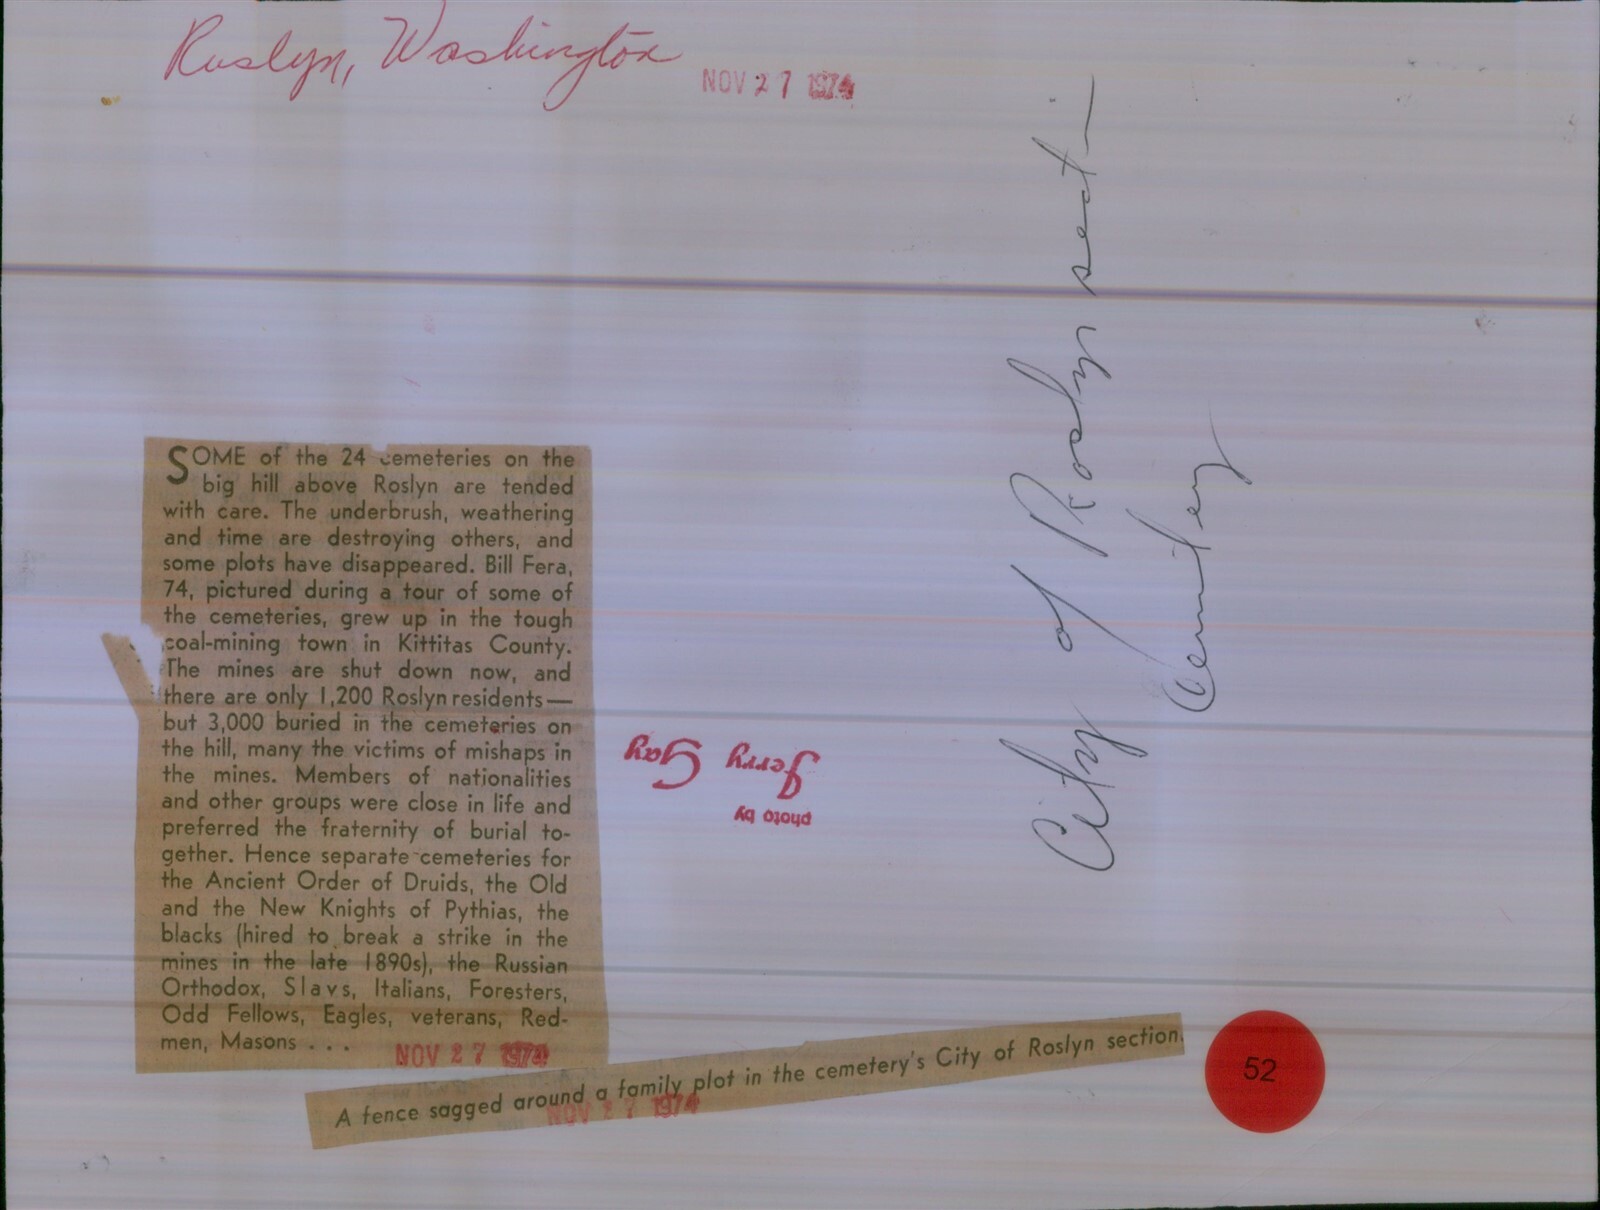 Roslyn, Washington
NOV 27 1974
SOME of the 24 cemeteries on the
big hill above Roslyn are tended
with care. The underbrush, weathering
and time are destroying others, and
some plots have disappeared. Bill Fera,
74, pictured during a tour of some of
the cemeteries, grew up in the tough
coal-mining town in Kittitas County.
The mines are shut down now, and
there are only 1,200 Roslyn residents—
but 3,000 buried in the cemeteries on
the hill, many the victims of mishaps in
the mines. Members of nationalities
and other groups were close in life and
preferred the fraternity of burial to-
gether. Hence separate cemeteries for
the Ancient Order of Druids, the Old
and the New Knights of Pythias, the
blacks (hired to break a strike in the
mines in the late 1890s), the Russian
Orthodox, Slavs, Italians, Foresters,
Odd Fellows, Eagles, veterans, Red-
men, Masons . . .
NOV 27 1974
A fence sagged around a family plot in the cemetery's City of Roslyn section.
NOV 27 1974
photo by
Jerry Gay
City of Roslyn section
Cemetery
52